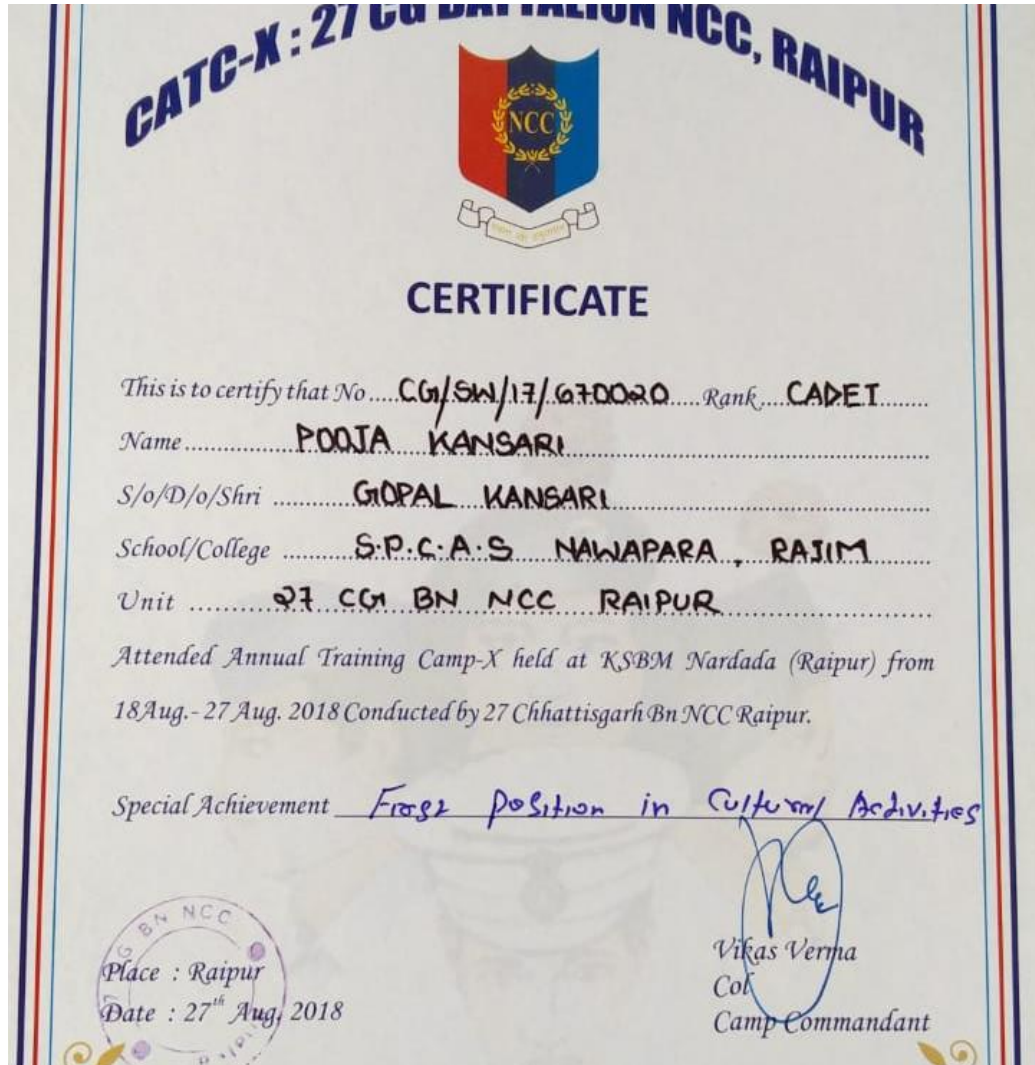 CATC-X : 27 CG BATTALION NCC, RAIPUR
NCC
CERTIFICATE
This is to certify that No ..... CG/SW/17/670020 ..... Rank .... CADET ........
Name .............. POOJA KANSARI ..............
S/o/D/o/Shri .......... GOPAL KANSARI ..............
School/College .......... S.P.C.A.S NAWAPARA, RAJIM ........
Unit ........... 27 CG BN NCC RAIPUR ..............
Attended Annual Training Camp-X held at KSBM Nardada (Raipur) from
18Aug.- 27 Aug. 2018 Conducted by 27 Chhattisgarh Bn NCC Raipur.
Special Achievement First Position in Cultural Activities
G BN NCC
Place : Raipur
Date : 27th Aug, 2018
Vikas Verma
Col
Camp Commandant